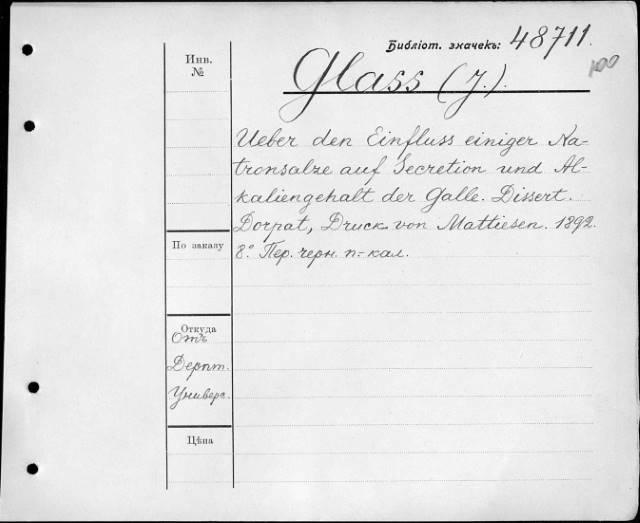 Библіот. значекъ: 48711.
100
Инв.
№
Glass (J.).
Ueber den Einfluss einiger Na-
tronsalze auf Secretion und Al-
kaliengehalt der Galle. Dissert.
Dorpat, Druck von Mattiesen. 1892.
8° Пер. черн. п.-кал.
По заказу
Откуда
Отъ
Дерпт.
Универс.
Цѣна